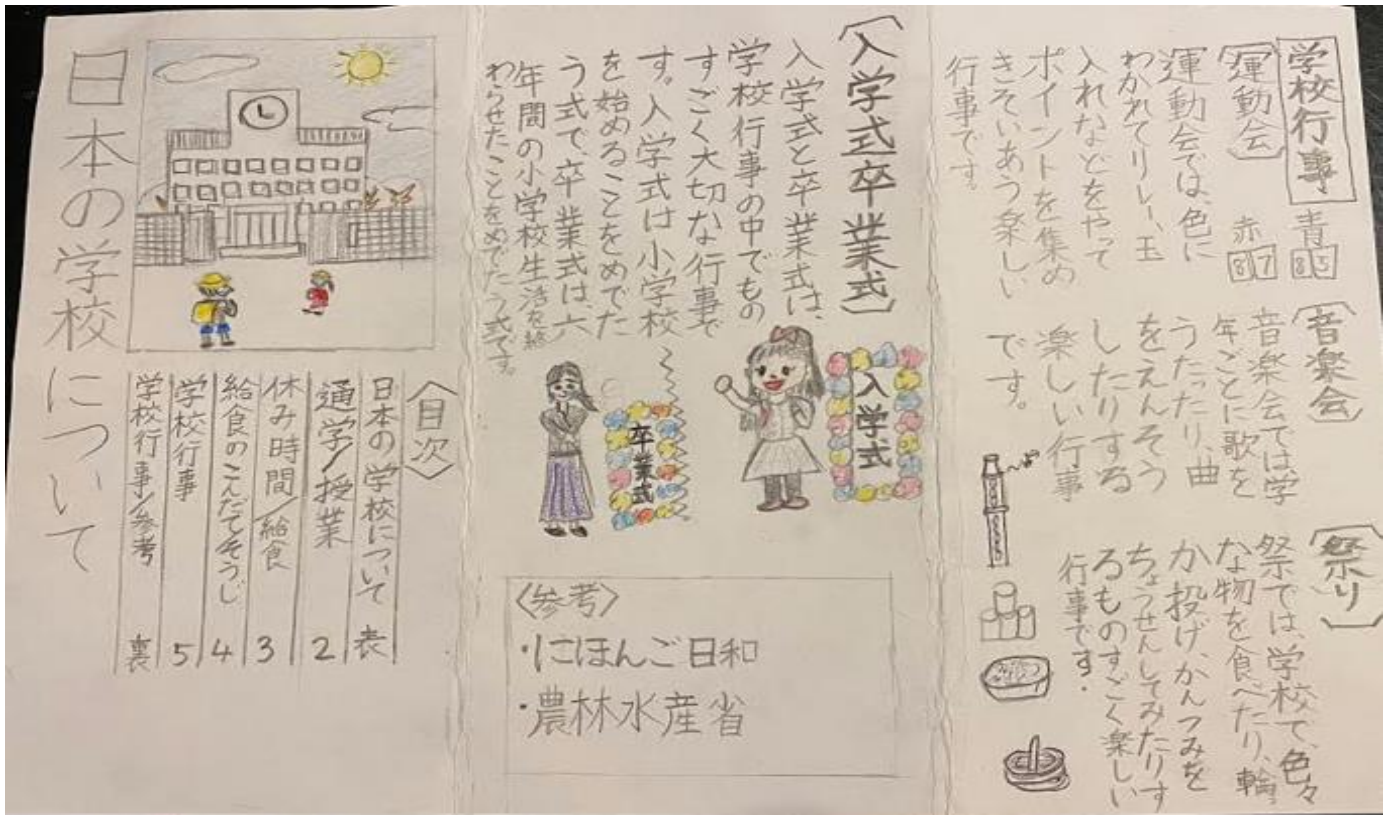 学校行事
〔運動会〕
運動会では、色に
わかれてリレー、玉
入れなどをやって
ポイントを集め
きそいあう楽しい
行事です。
青
85
赤
87
〔音楽会〕
音楽会では、学
年ごとに歌を
うたったり、曲
をえんそう
したりする
楽しい行事
です。
〔祭り〕
祭では、学校で、色々
な物を食べたり、輪
か投げ、かんつみを
ちょうせんしてみたりす
るものすごく楽しい
行事です。
〔入学式卒業式〕
入学式と卒業式は、
学校行事の中でもの
すごく大切な行事で
す。入学式は小学校
を始めることをめでた
う式で、卒業式は、六
年間の小学校生活を終
わらせたことをめでたう式です。
入学式
卒業式
〈参考〉
・にほんご日和
・農林水産省
日本の学校について
〈目次〉
日本の学校について 表
通学/授業 2
休み時間/給食 3
給食のこんだてそうじ 4
学校行事 5
学校行事/参考 裏